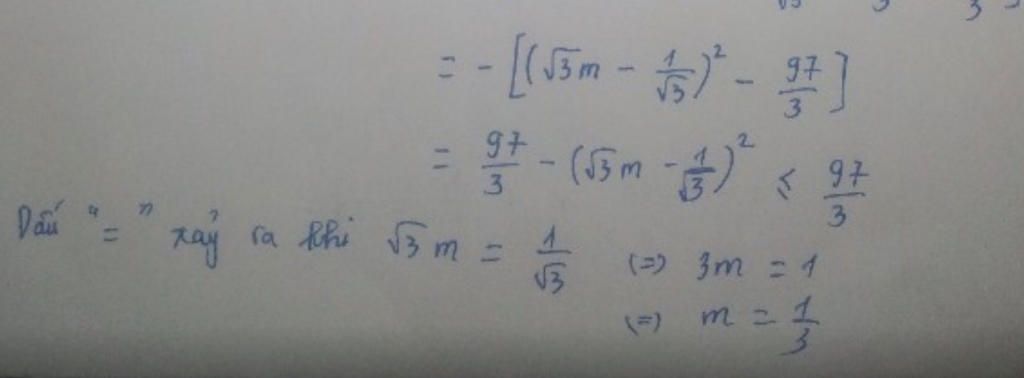 = - [(√3m - 1/√3)² - 97/3]
= 97/3 - (√3m - 1/√3)² ≤ 97/3
Dấu "=" xảy ra khi √3m = 1/√3 (=) 3m = 1
(=) m = 1/3